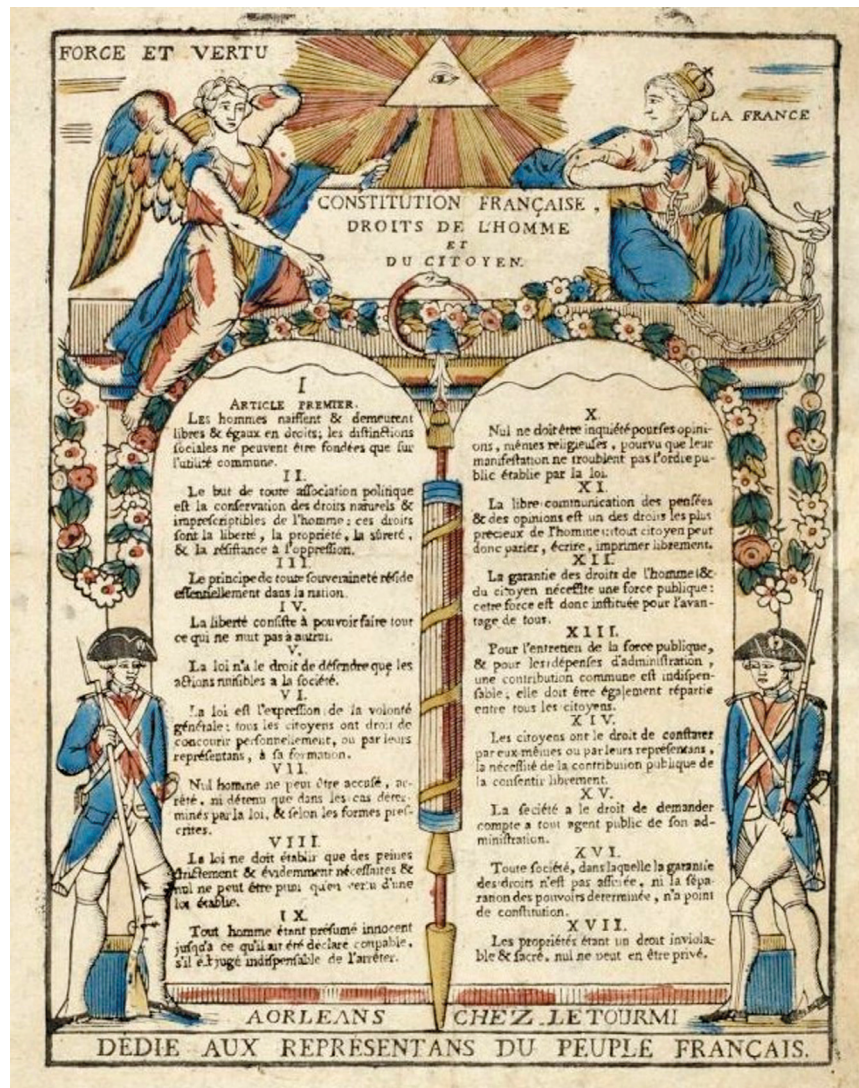 FORCE ET VERTU
LA FRANCE
CONSTITUTION FRANÇAISE,
DROITS DE L'HOMME
ET
DU CITOYEN.
I
ARTICLE PREMIER.
Les hommes naissent & demeurent
libres & égaux en droits; les distinctions
sociales ne peuvent être fondées que sur
l'utilité commune.
II.
Le but de toute association politique
est la conservation des droits naturels &
imprescriptibles de l'homme: ces droits
sont la liberté, la propriété, la sûreté,
& la résistance à l'oppression.
III.
Le principe de toute souveraineté réside
essentiellement dans la nation.
IV.
La liberté consiste à pouvoir faire tout
ce qui ne nuit pas à autrui.
V.
La loi n'a le droit de défendre que les
actions nuisibles a la société.
VI.
La loi est l'expression de la volonté
générale: tous les citoyens ont droit de
concourir personnellement, ou par leurs
représentans, à sa formation.
VII.
Nul homme ne peut être accusé, ar-
rêté, ni détenu que dans les cas déter-
minés par la loi, & selon les formes pres-
crites.
VIII.
La loi ne doit établir que des peines
strictement & évidemment nécessaires &
nul ne peut être puni qu'en vertu d'une
loi établie.
IX.
Tout homme étant présumé innocent
jusqu'a ce qu'il ait été déclaré coupable,
s'il est jugé indispensable de l'arrêter.
X.
Nul ne doit être inquiété pour ses opini-
ons, mêmes religieuses, pourvu que leur
manifestation ne troublent pas l'ordre pu-
blic établie par la loi.
XI.
La libre communication des pensées
& des opinions est un des droits les plus
précieux de l'homme: tout citoyen peut
donc parler, écrire, imprimer librement.
XII.
La garantie des droits de l'homme &
du citoyen nécessite une force publique:
cette force est donc instituée pour l'avan-
tage de tous.
XIII.
Pour l'entretien de la force publique,
& pour les dépenses d'administration,
une contribution commune est indispen-
sable; elle doit être également répartie
entre tous les citoyens.
XIV.
Les citoyens ont le droit de constater
par eux-mêmes ou par leurs représentans,
la nécessité de la contribution publique de
la consentir librement.
XV.
La société a le droit de demander
compte a tout agent public de son ad-
ministration.
XVI.
Toute société, dans laquelle la garantie
des droits n'est pas assurée, ni la sépa-
ration des pouvoirs determinée, n'a point
de constitution.
XVII.
Les propriétés étant un droit inviola-
ble & sacré, nul ne peut en être privé.
AORLEANS CHEZ LETOURMI
DÉDIE AUX REPRÉSENTANS DU PEUPLE FRANÇAIS.